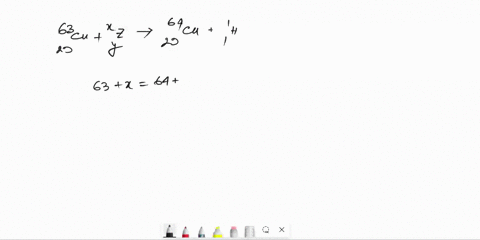 ⁶³₂₀Cu + ˣᵧZ → ⁶⁴₂₀Cu + ¹₁H
63 + x = 64 +